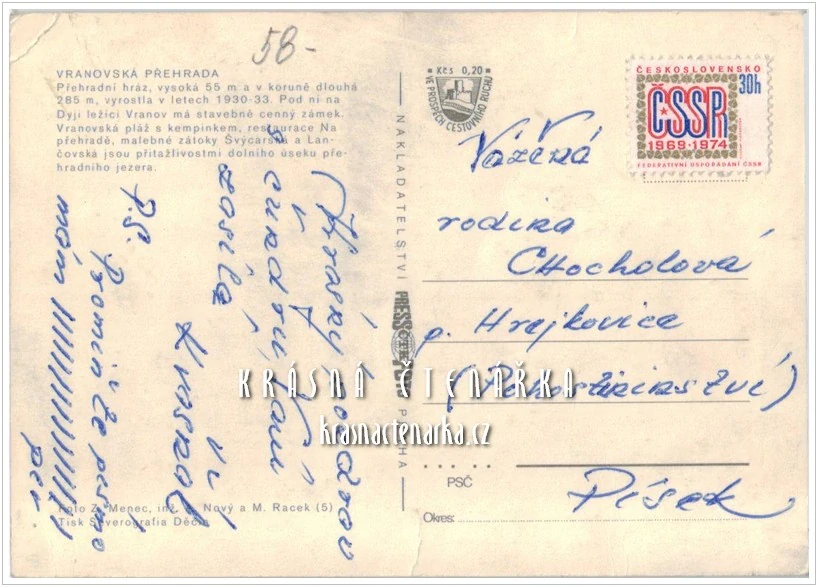 58-
VRANOVSKÁ PŘEHRADA
Přehradní hráz, vysoká 55 m a v koruně dlouhá
285 m, vyrostla v letech 1930-33. Pod ní na
Dyji ležící Vranov má stavebně cenný zámek.
Vranovská pláž s kempinkem, restaurace Na
přehradě, malebné zátoky Švýcarsko a Lan-
čovská jsou přitažlivostmi dolního úseku pře-
hradního jezera.
Krásný pozdrav
z
Vám
zasílá
PS. Promiň že píšu
mám
Foto Z. Menec, inž. Nový a M. Racek (5)
Tisk Severografia Děčín
NAKLADATELSTVÍ PRESSFOTO PRAHA
Kčs 0,20
VE PROSPĚCH CESTOVNÍHO RUCHU
ČESKOSLOVENSKO
30h
ČSSR
1969-1974
FEDERATIVNÍ USPOŘÁDÁNÍ ČSSR
Vážená
rodina
Chocholová
p. Hrejkovice
(Pohostinství)
PSČ
Písek
Okres:
KRÁSNÁ ČTENÁŘKA
krasnactenarka.cz